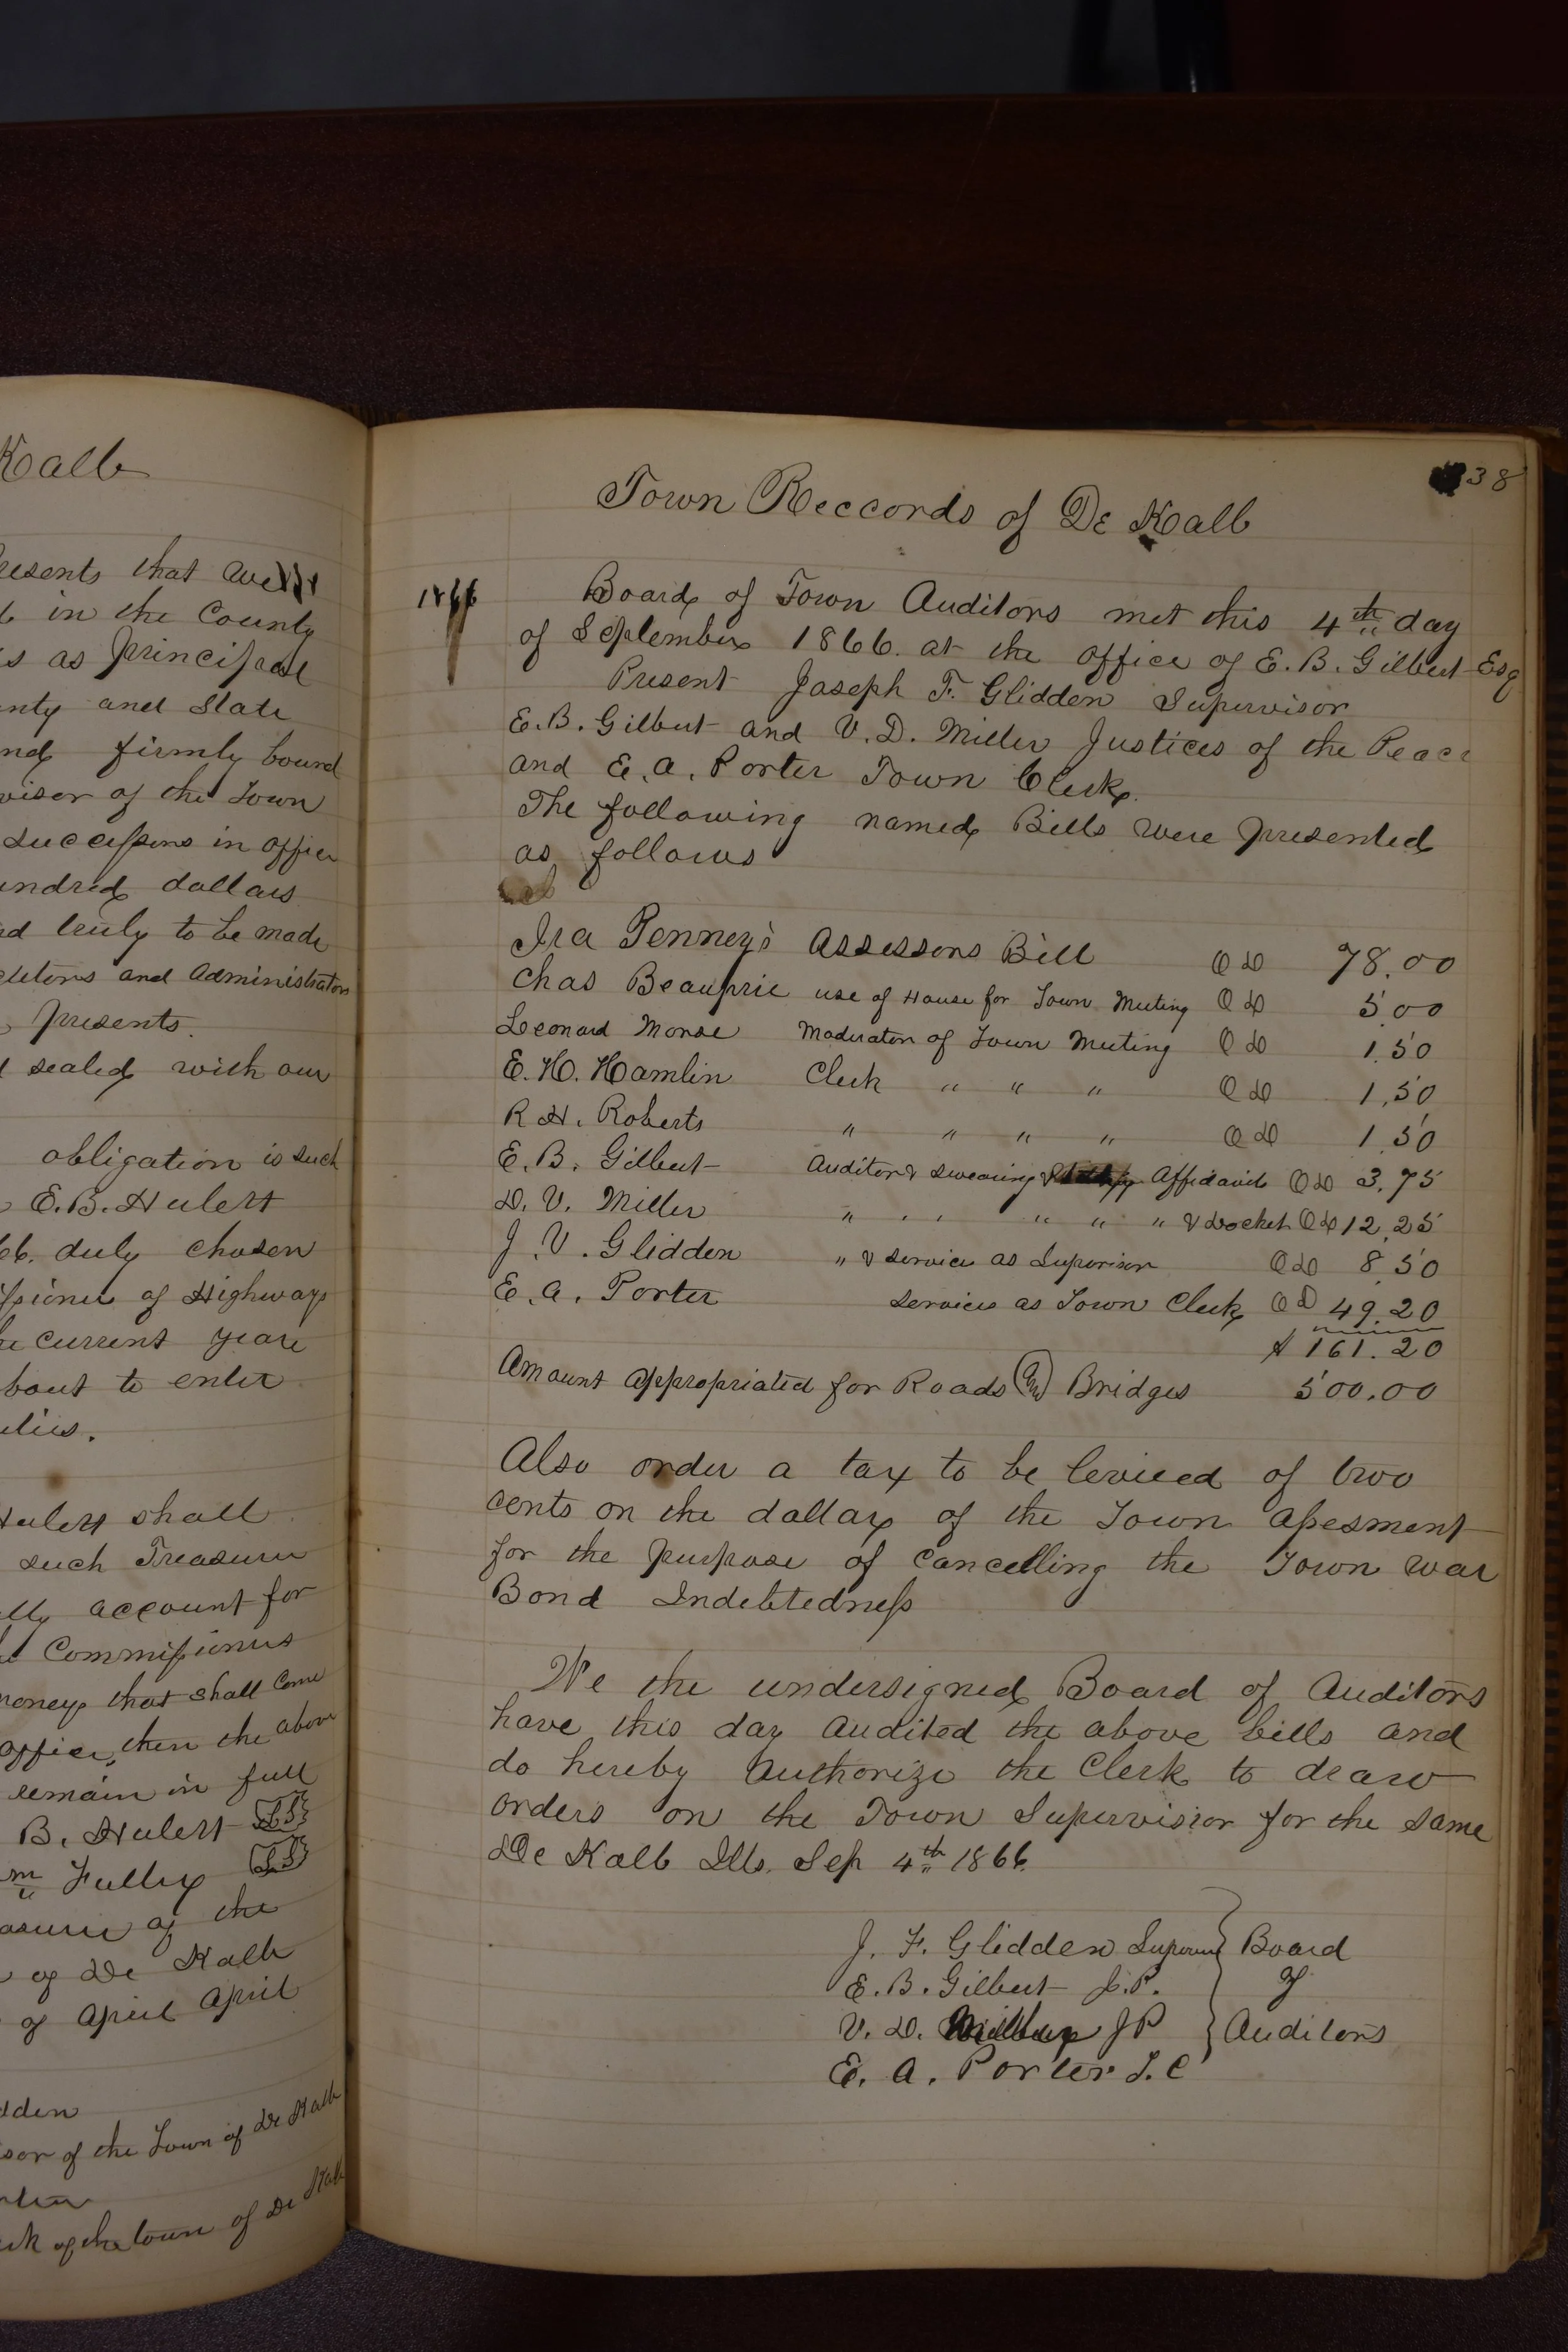 Kalb
resents that we
in the County
as principal
and State
firmly bound
of the Town
successors in office
hundred dollars
truly to be made
and Administrators
presents.
sealed with our
obligation is such
E. B. Hulert
duly chosen
of Highways
current year
bout to enter
Hulert shall
such Treasurer
account for
Commissioners
money that shall come
office, then the above
remain in full
B. Hulert L.S
Fuller L.S
of the
of De Kalb
of April April
dden
sor of the Town of De Kalb
of the town of De Kalb
38
Town Reccords of De Kalb
1866
Board of Town Auditors met this 4th day
of September 1866. at the office of E. B. Gilbert Esq
Present Joseph F. Glidden Supervisor
E. B. Gilbert and V. D. Miller Justices of the Peace
and E. A. Porter Town Clerk.
The following named Bills were presented
as follows
Ira Penney's Assessors Bill @ 78.00
Chas Beauprie use of House for Town Meeting @ 5.00
Leonard Morse Moderator of Town Meeting @ 1.50
E. H. Hamlin Clerk " " " @ 1.50
R. H. Roberts " " " " @ 1.50
E. B. Gilbert Auditor & swearing Affidavit @ 3.75
D. V. Miller " " " " " & docket @ 12.25
J. V. Glidden " & service as Supervisor @ 8.50
E. A. Porter services as Town Clerk @ 49.20
$ 161.20
Amount appropriated for Roads and Bridges 500.00
Also order a tax to be levieed of two
cents on the dollar of the Town assesment
for the purpose of cancelling the Town war
Bond Indebtedness
We the undersigned Board of Auditors
have this day audited the above bills and
do hereby authorize the Clerk to draw
orders on the Town Supervisior for the same
De Kalb Ills. Sep 4th 1866.
J. F. Glidden Superviser Board
E. B. Gilbert J.P. of
V. D. Miller JP Auditors
E. A. Porter T. C